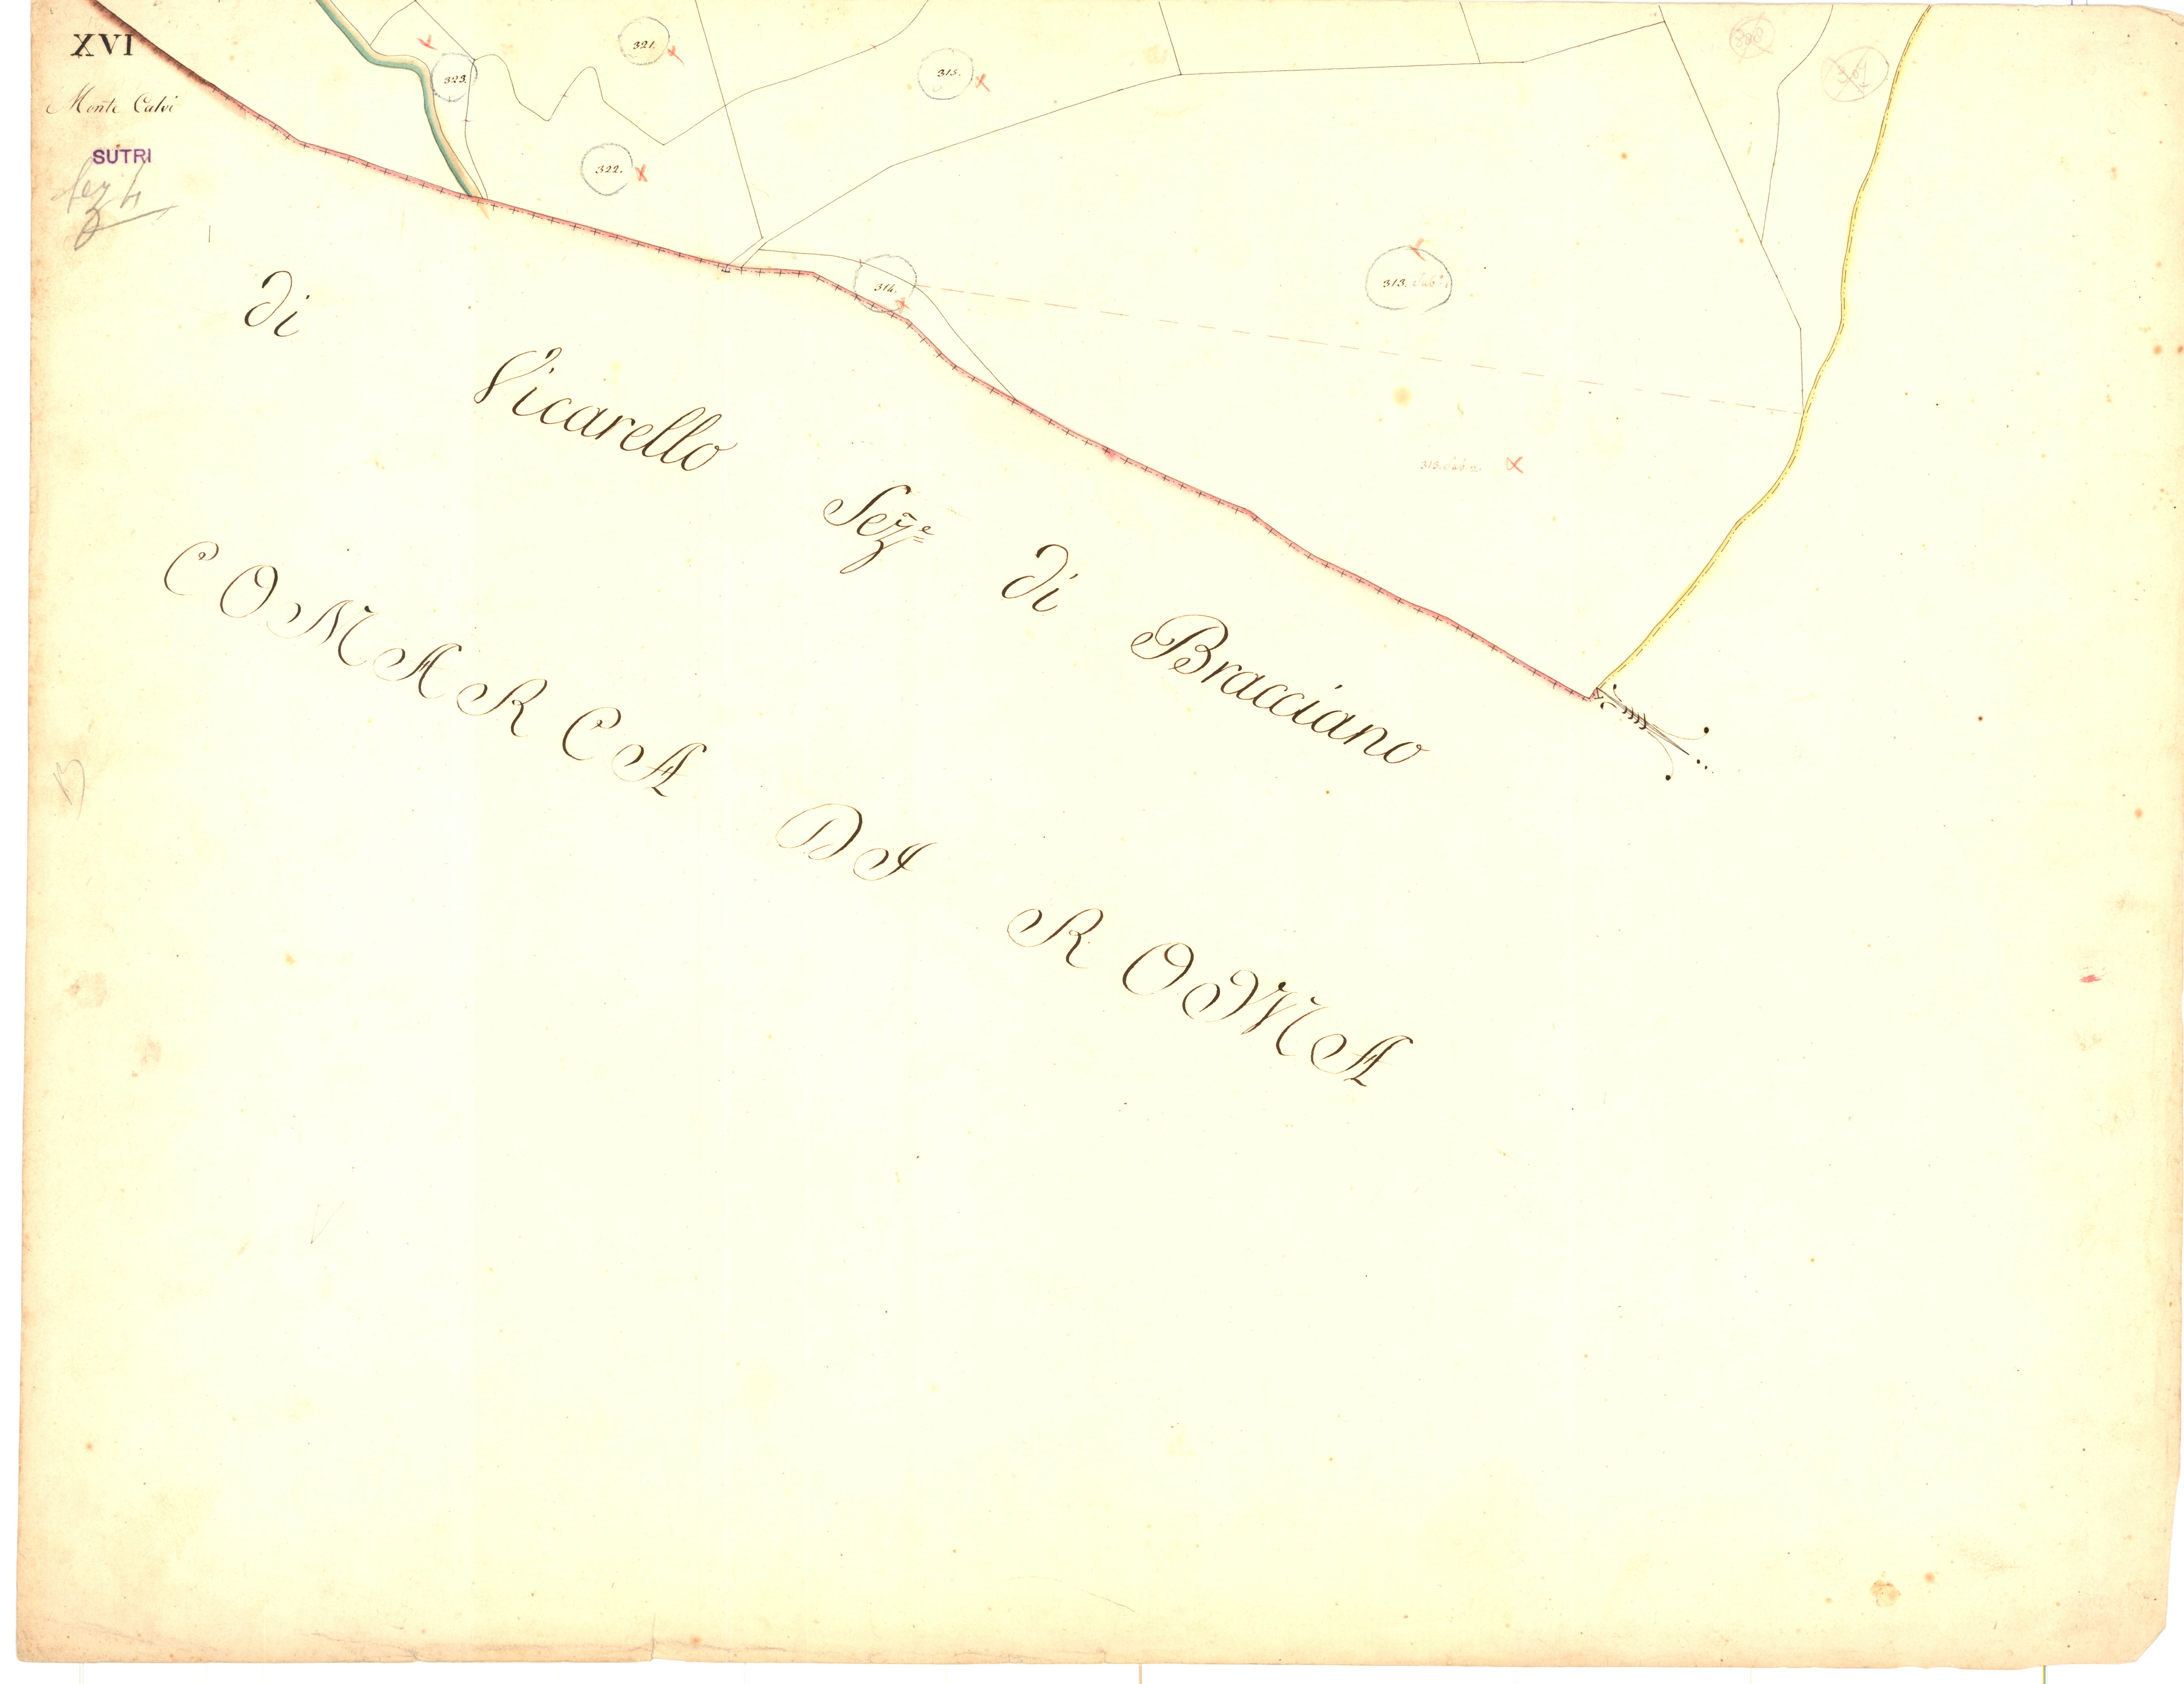 XVI
Monte Calvi
SUTRI
Sez 4
323.
321.
322.
315.
314.
313. Sub. 1
313. Sub. 2.
di Vicarello Sez.e di Bracciano
COMARCA DI ROMA